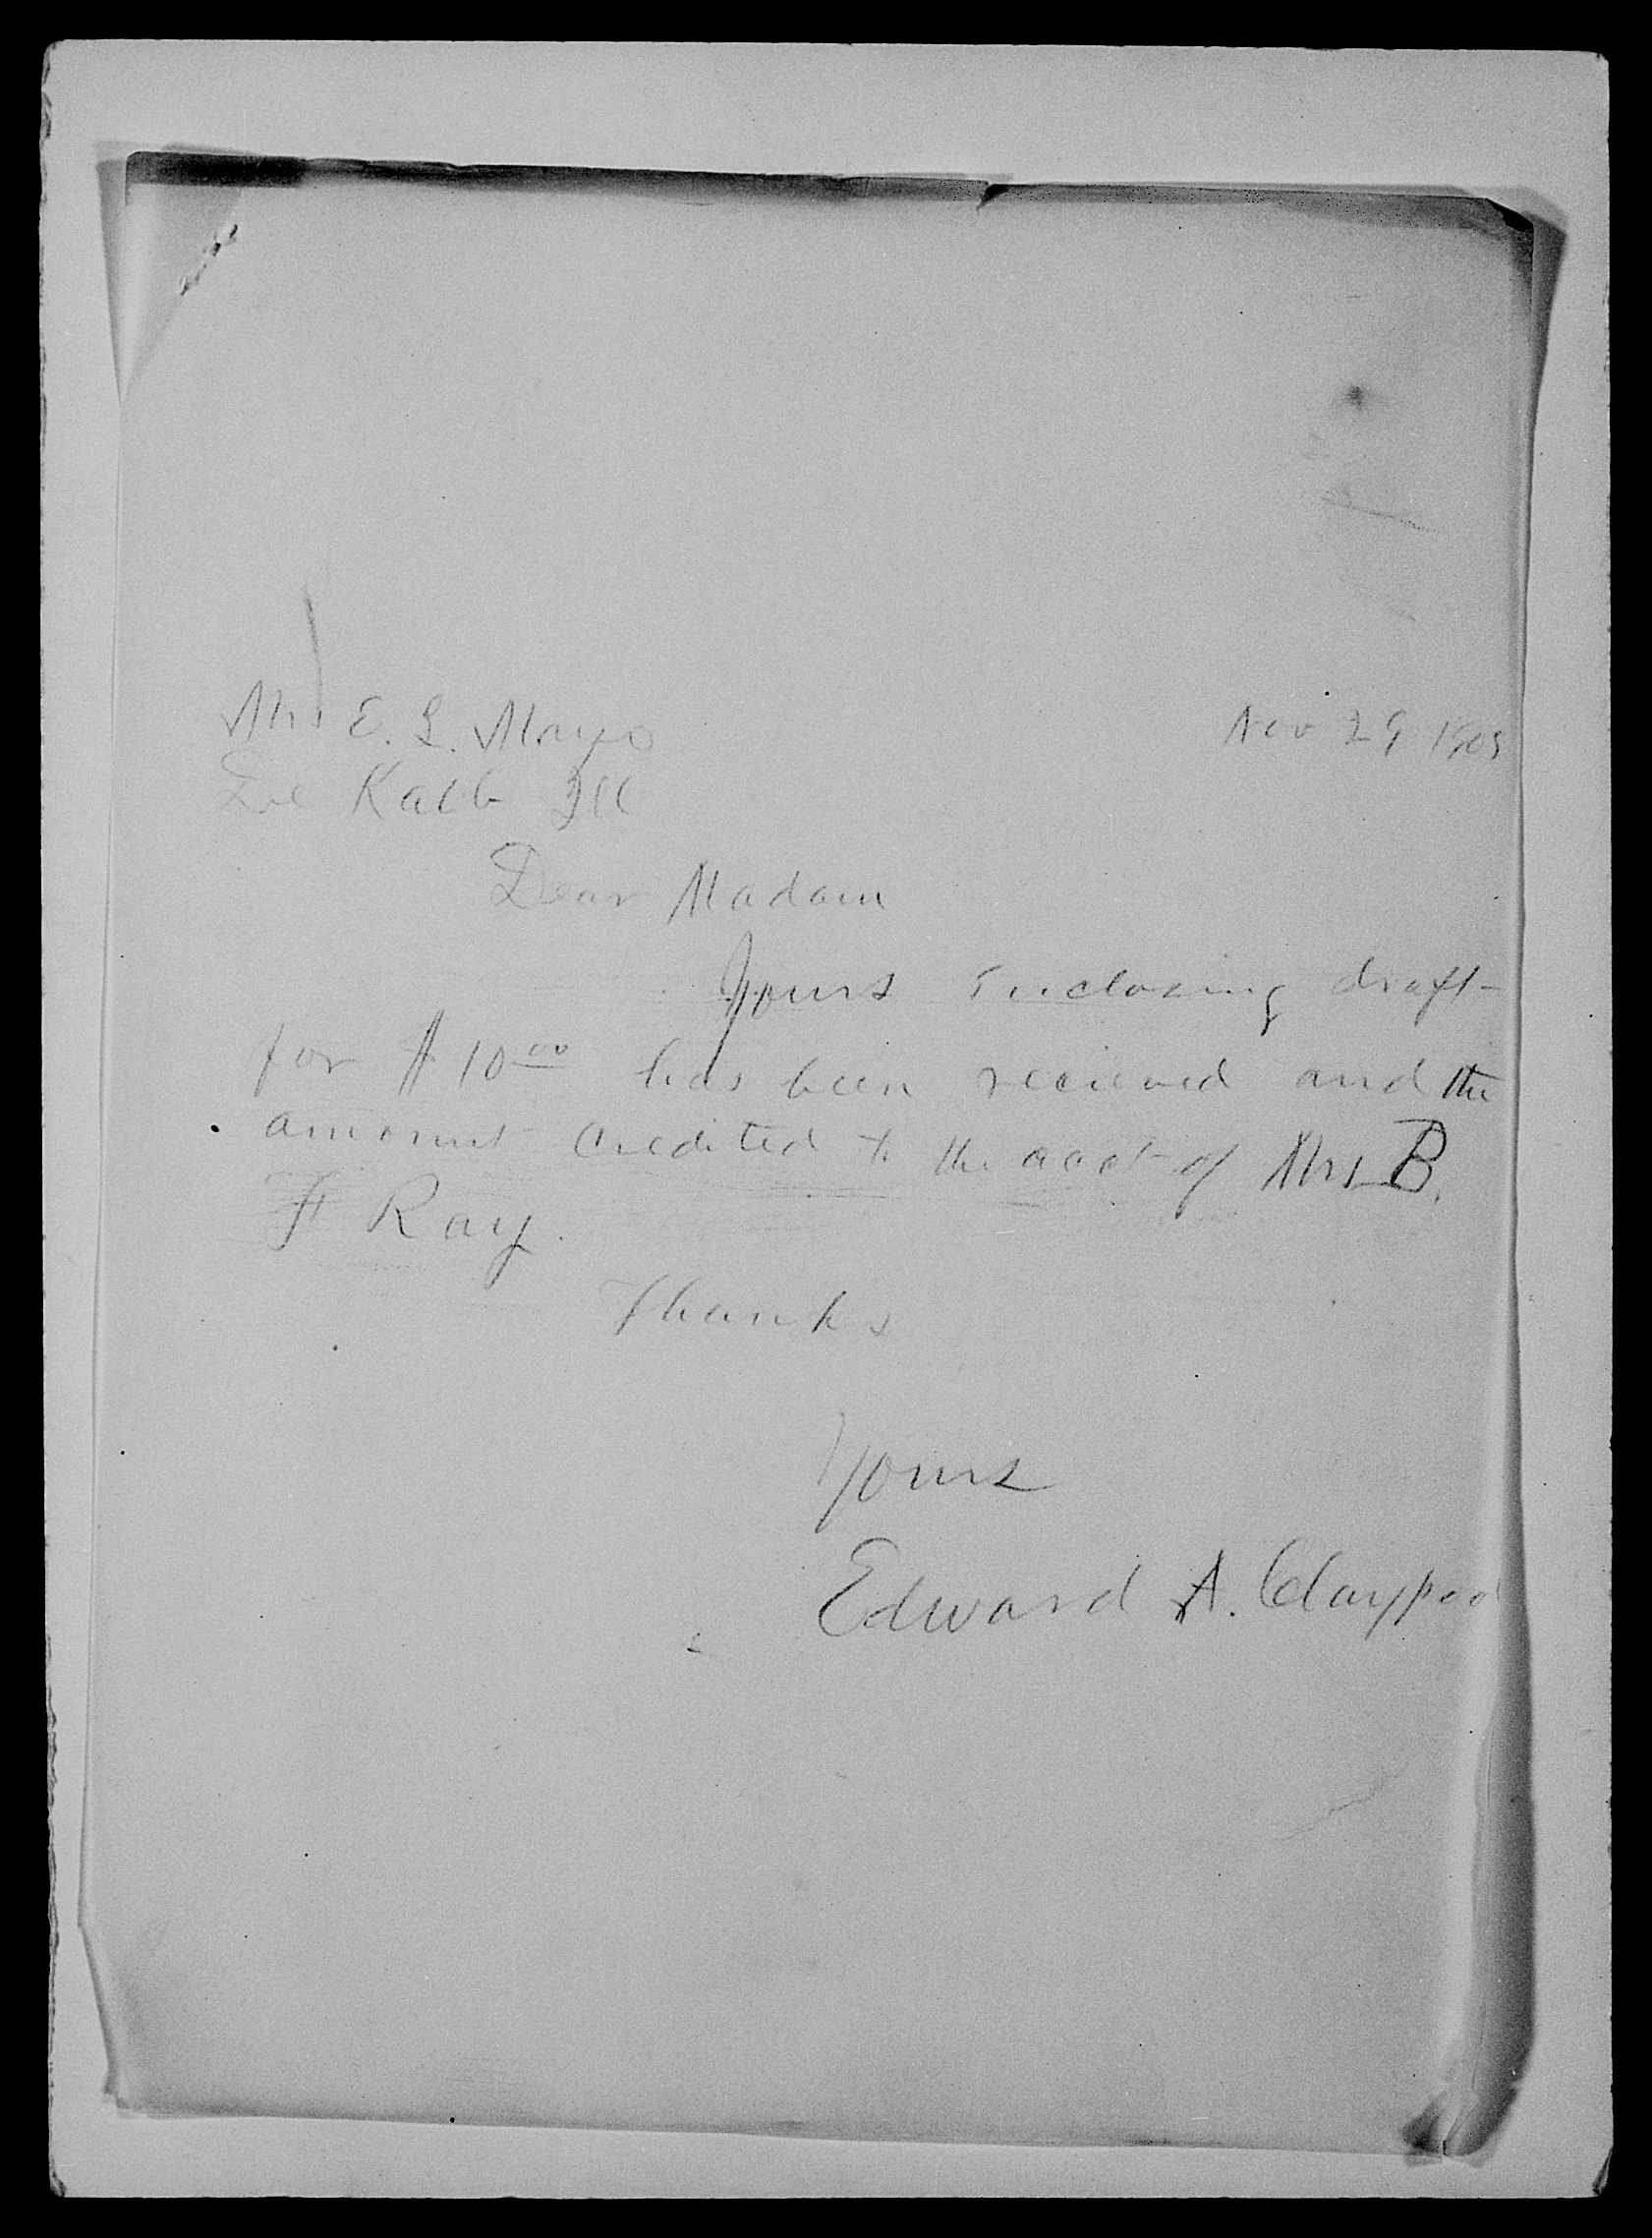 Mrs E. L. Mayo
Nov 29 1905
De Kalb Ill
Dear Madam
Yours Inclosing draft
for $10.00 has been recieved and the
amount credited to the acct of Mrs B.
F Ray.
Thanks
Yours
Edward A. Claypool